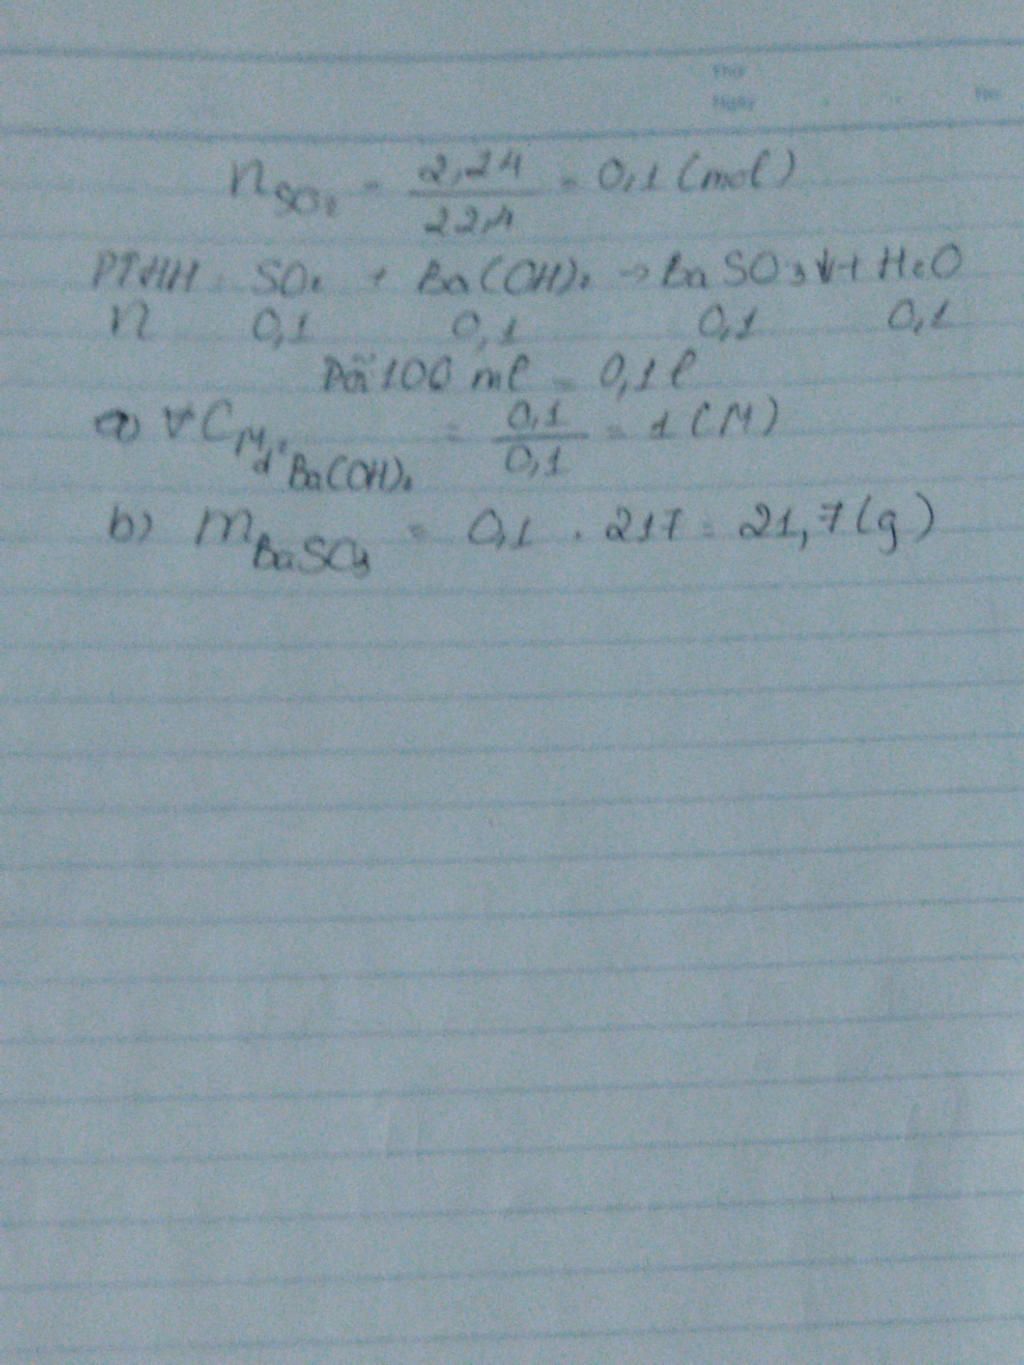 Thứ
Ngày No.
n SO₂ = 2,24 / 22,4 = 0,1 (mol)
PTHH: SO₂ + Ba(OH)₂ → BaSO₃↓ + H₂O
n 0,1 0,1 0,1 0,1
Đổi 100 ml = 0,1 l
a) C M Ba(OH)₂ = 0,1 / 0,1 = 1 (M)
b) m BaSO₃ = 0,1 . 217 = 21,7 (g)